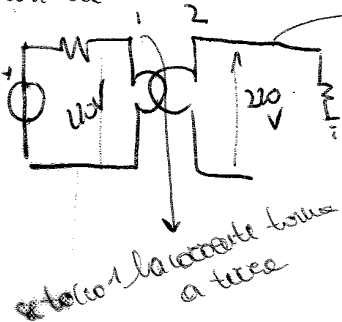 1 2
220V
220
V
se tocco 1 la corrente torna
a terra